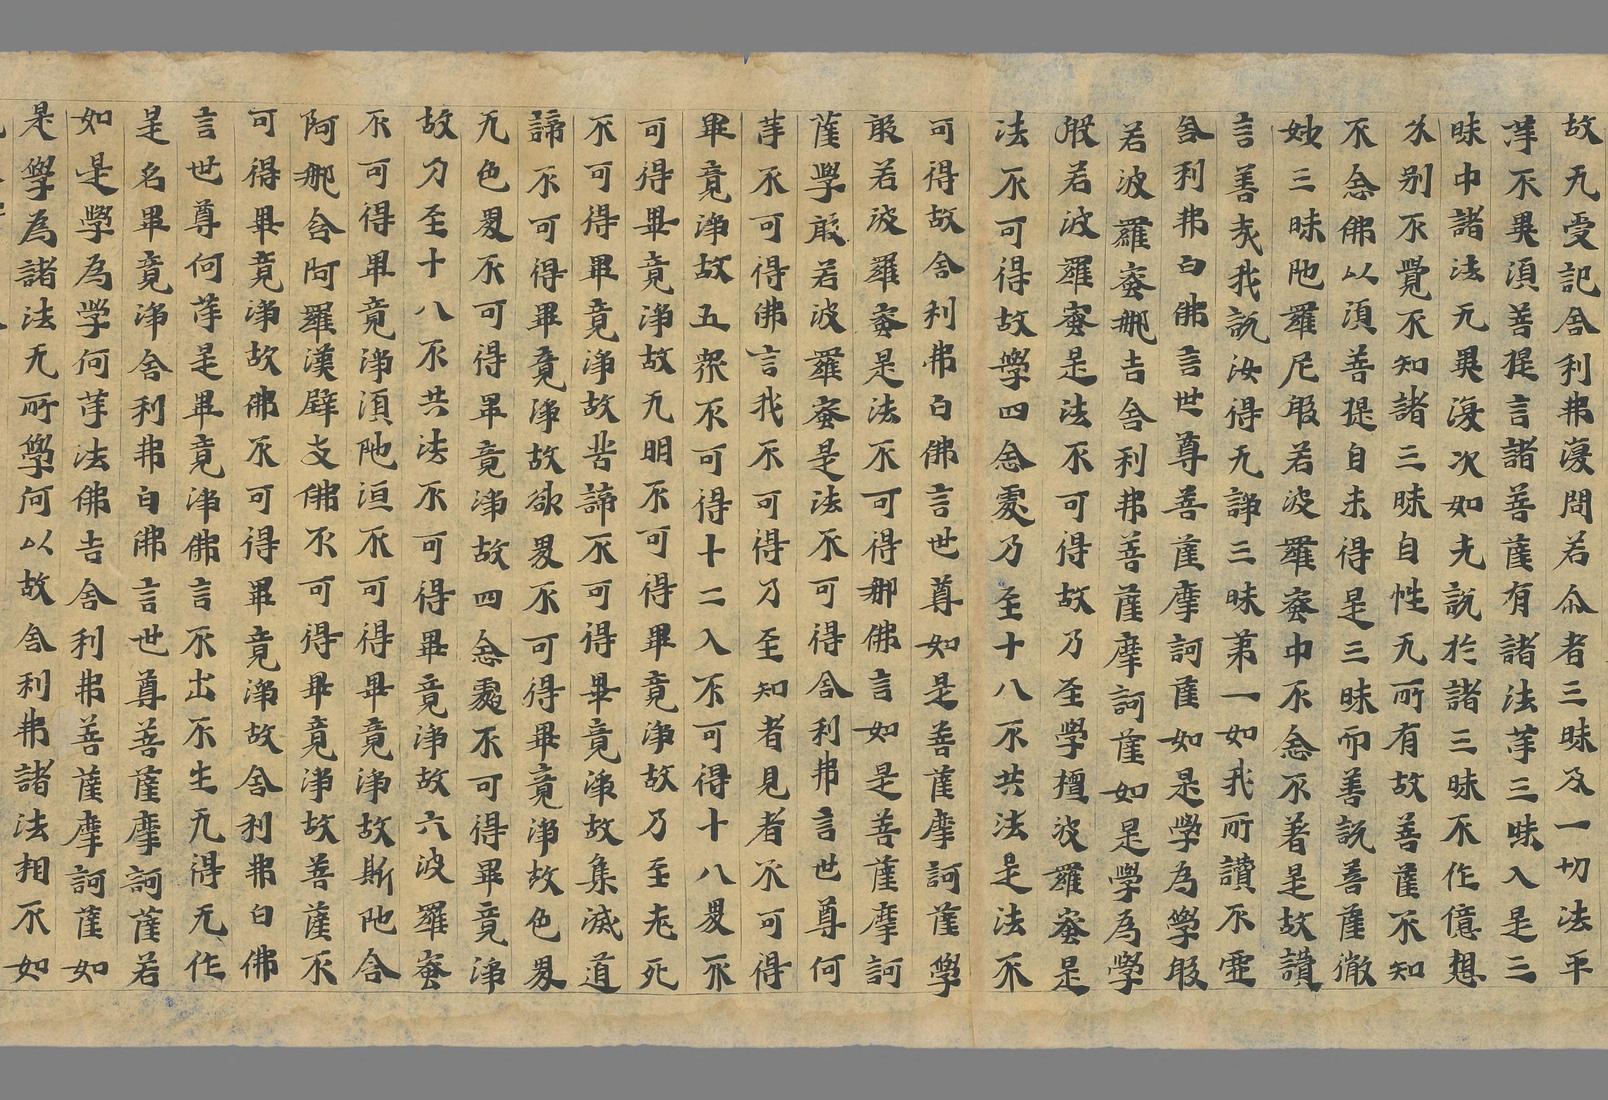 故无受記舎利弗復問若尒者三昧及一切法平
䓁不異湏善提言諸善薩有諸法䓁三昧入是三
昧中諸法无異復次如先説於諸三昧不作億想
分别不覺不知諸三昧自性无所有故善薩不知
不念佛以湏善提自未得是三昧而善説善薩微
妙三昧陁羅尼般若波羅蜜中不念不著是故讃
言善㦲我説汝得无諍三昧第一如我所讃不虚
舎利弗白佛言世尊善薩摩訶薩如是學為學般
若波羅蜜耶吉舎利弗善薩摩訶薩如是學為學
般若波羅蜜是法不可得故乃至學檀波羅蜜是
法不可得故學四念處乃至十八不共法是法不
可得故舎利弗白佛言世尊如是善薩摩訶薩學
般若波羅蜜是法不可得耶佛言如是善薩摩訶
薩學般若波羅蜜是法不可得舎利弗言世尊何
䓁不可得佛言我不可得乃至知者見者不可得
畢竟淨故五衆不可得十二入不可得十八界不
可得畢竟淨故无明不可得畢竟淨故乃至老死
不可得畢竟淨故苦諦不可得畢竟淨故集滅道
諦不可得畢竟淨故欲界不可得畢竟淨故色界
无色界不可得畢竟淨故四念處不可得畢竟淨
故乃至十八不共法不可得畢竟淨故六波羅蜜
不可得畢竟淨湏陁洹不可得畢竟淨故斯陁含
阿那含阿羅漢辟支佛不可得畢竟淨故善薩不
可得畢竟淨故佛不可得畢竟淨故舎利弗白佛
言世尊何䓁是畢竟淨佛言不出不生无得无作
是名畢竟淨舎利弗白佛言世尊善薩摩訶薩若
如是學為學何䓁法佛吉舎利弗善薩摩訶薩如
是學為諸法无所學何以故舎利弗諸法相不如